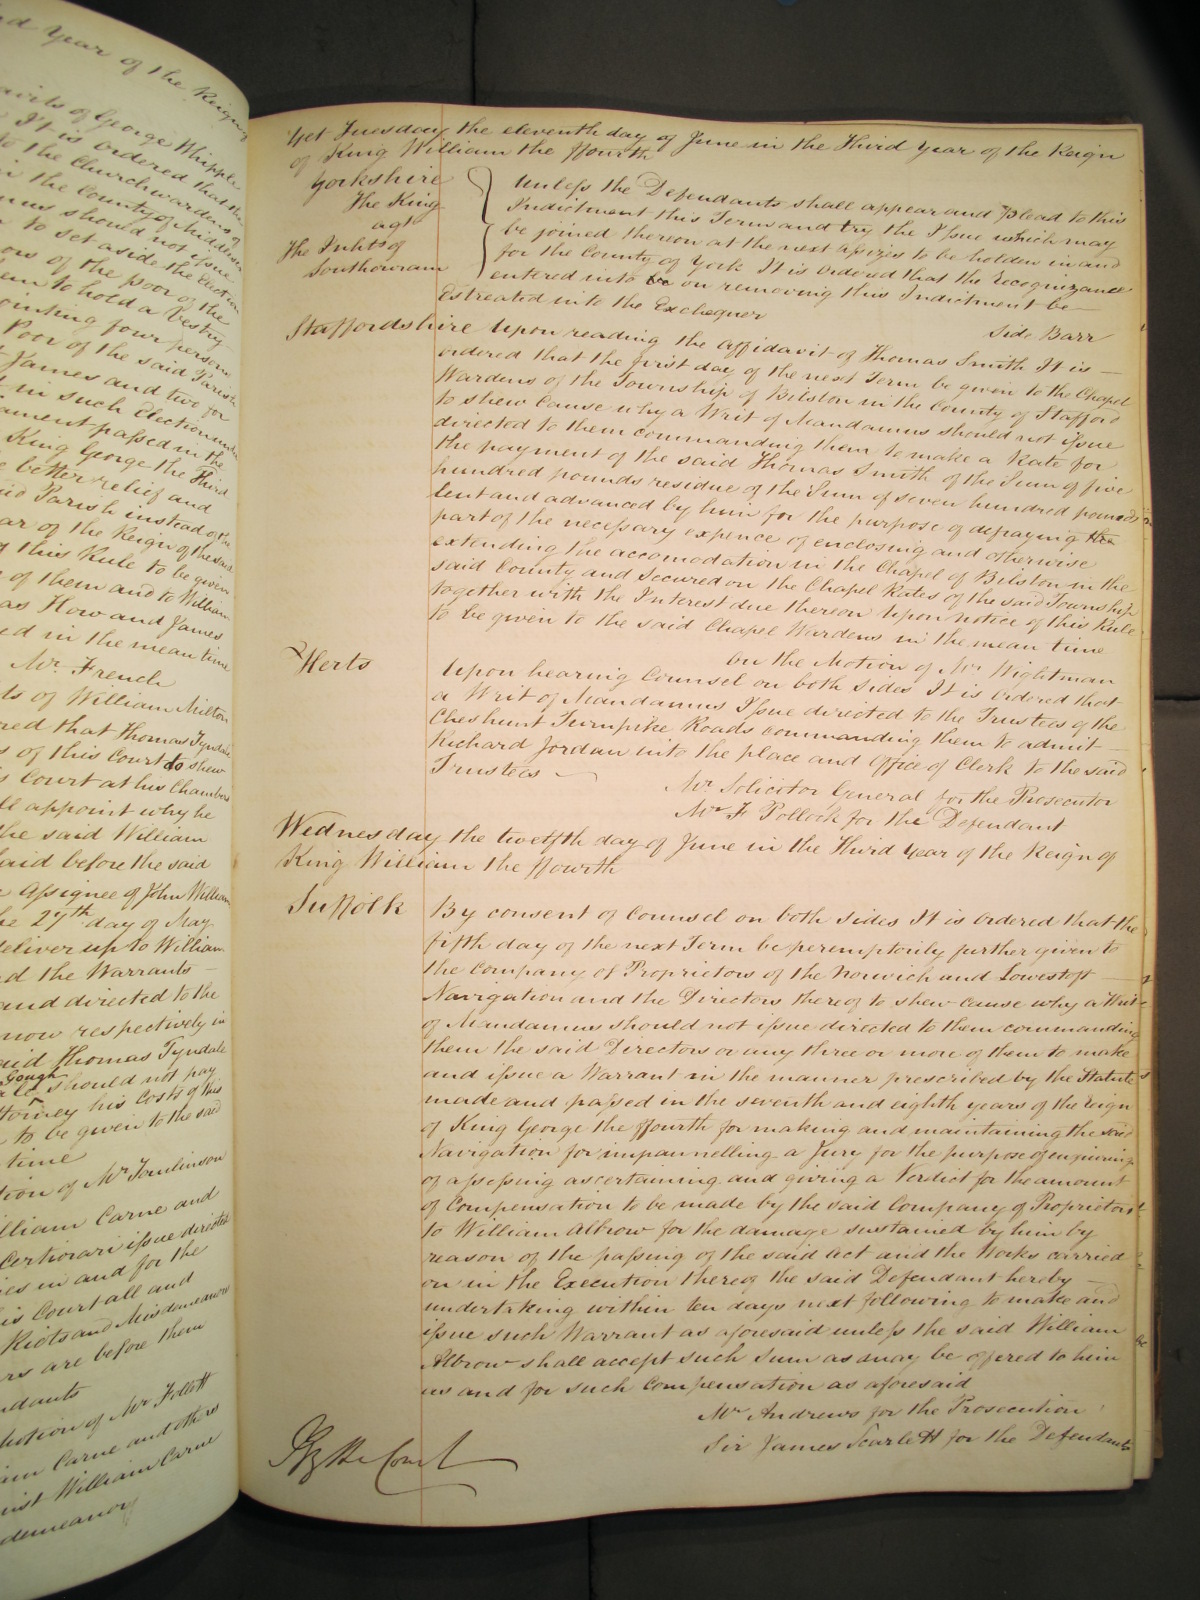 nd Year of the Reign of
avits of George Whipple
It is ordered that the
to the Churchwardens of
in the County of Middlesex
mus should not issue
to set aside the Election
ors of the poor of the
em to hold a Vestry
ointing four persons
Poor of the said Parish
James and two for
in such Election under
ament passed in the
King George the Third
better relief and
aid Parish instead of the
ar of the Reign of the said
of this Rule to be given
of them and to William
as How and James
ed in the mean time
Mr. French
ts of William Milton
red that Thomas Tyndale
s of this Court to shew
is Court at his Chambers
ll appoint why he
the said William
said before the said
Assignee of John William
he 27th day of May
deliver up to William
nd the Warrants
and directed to the
now respectively in
aid Thomas Tyndale
Gough
should not pay
ttorney his Costs of this
to be given to the said
time
tion of Mr. Tomlinson
illiam Carne and
Certiorari issue directed
ies in and for the
is Court all and
Riots and Misdemeanors
rs are before them
ndants
Motion of Mr Follett
iam Carne and others
inst William Carne
demeanor
Yet Tuesday the eleventh day of June in the Third Year of the Reign
of King William the ffourth
Yorkshire
The King
agt
The Inhts of
Southowram
Unless the Defendants shall appear and Plead to this
Indictment this Term and try the Issue which may
be joined thereon at the next assizes to be holden in and
for the County of York It is Ordered that the Recognizance
entered into on removing this Indictment be
Estreated into the Exchequer
Side Barr
Staffordshire Upon reading the Affidavit of Thomas Smith It is —
ordered that the first day of the next Term be given to the Chapel
Wardens of the Township of Bilston in the County of Stafford
to shew Cause why a Writ of Mandamus should not issue
directed to them commanding them to make a Rate for
the payment of the said Thomas Smith of the Sum of five
hundred pounds residue of the Sum of seven hundred pounds
lent and advanced by him for the purpose of defraying the
part of the necessary expence of enclosing and otherwise
extending the accomodation in the Chapel of Bilston in the
said County and Secured on the Chapel Rates of the said Township
together with the Interest due thereon Upon Notice of this Rule
to be given to the said Chapel Wardens in the mean time
On the Motion of Mr Wightman
Herts
Upon hearing Counsel on both Sides It is ordered that
a Writ of Mandamus Issue directed to the Trustees of the
Cheshunt Turnpike Roads commanding them to admit —
Richard Jordan into the place and Office of Clerk to the said
Trustees
Mr Solicitor General for the Prosecutor
Mr F Pollock for the Defendant
Wednesday the twelfth day of June in the Third Year of the Reign of
King William the ffourth
Suffolk
By consent of Counsel on both sides It is ordered that the
fifth day of the next Term be peremptorily further given to
the Company of Proprietors of the Norwich and Lowestoft —
Navigation and the Directors thereof to shew cause why a Writ
of Mandamus should not issue directed to them commanding
them the said Directors or any three or more of them to make
and issue a Warrant in the manner prescribed by the Statute
made and passed in the seventh and eighth years of the reign
of King George the ffourth for making and maintaining the said
Navigation for impannelling a Jury for the purpose of enquiring
of assessing ascertaining and giving a Verdict for the amount
of Compensation to be made by the said Company of Proprietors
to William Albrow for the damage sustained by him by
reason of the passing of the said Act and the Works carried
on in the Execution thereof the said Defendant hereby —
undertaking within ten days next following to make and
issue such Warrant as aforesaid unless the said William
Albrow shall accept such Sum as may be offered to him
as and for such Compensation as aforesaid
Mr Andrews for the Prosecution
Sir James Scarlett for the Defendants
By the Court